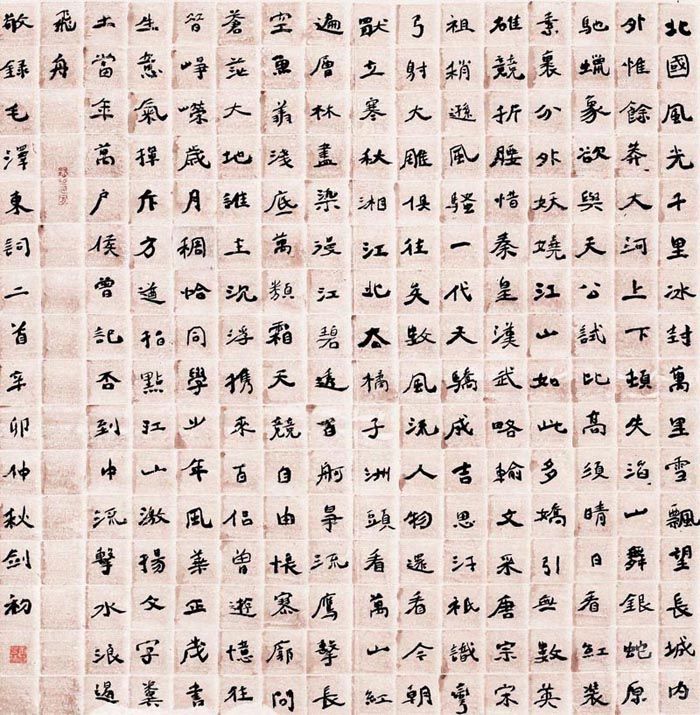 北國風光千里冰封萬里雪飄望長城内
外惟餘莽大河上下頓失滔山舞銀蛇原
馳蠟象欲與天公試比高須晴日看紅裝
素裹分外妖嬈江山如此多嬌引無數英
雄競折腰惜秦皇漢武略輸文采唐宗宋
祖稍遜風騷一代天驕成吉思汗祇識彎
弓射大雕俱往矣數風流人物還看今朝
獨立寒秋湘江北去橘子洲頭看萬山紅
遍層林盡染漫江碧透百舸爭流鷹擊長
空魚翔淺底萬類霜天競自由悵寥廓問
蒼茫大地誰主沉浮攜來百侣曾遊憶往
昔崢嶸歲月稠恰同學少年風華正茂書
生意氣揮斥方遒指點江山激揚文字糞
土當年萬户侯曾記否到中流擊水浪遏
飛舟
敬錄毛澤東詞二首辛卯仲秋劍初